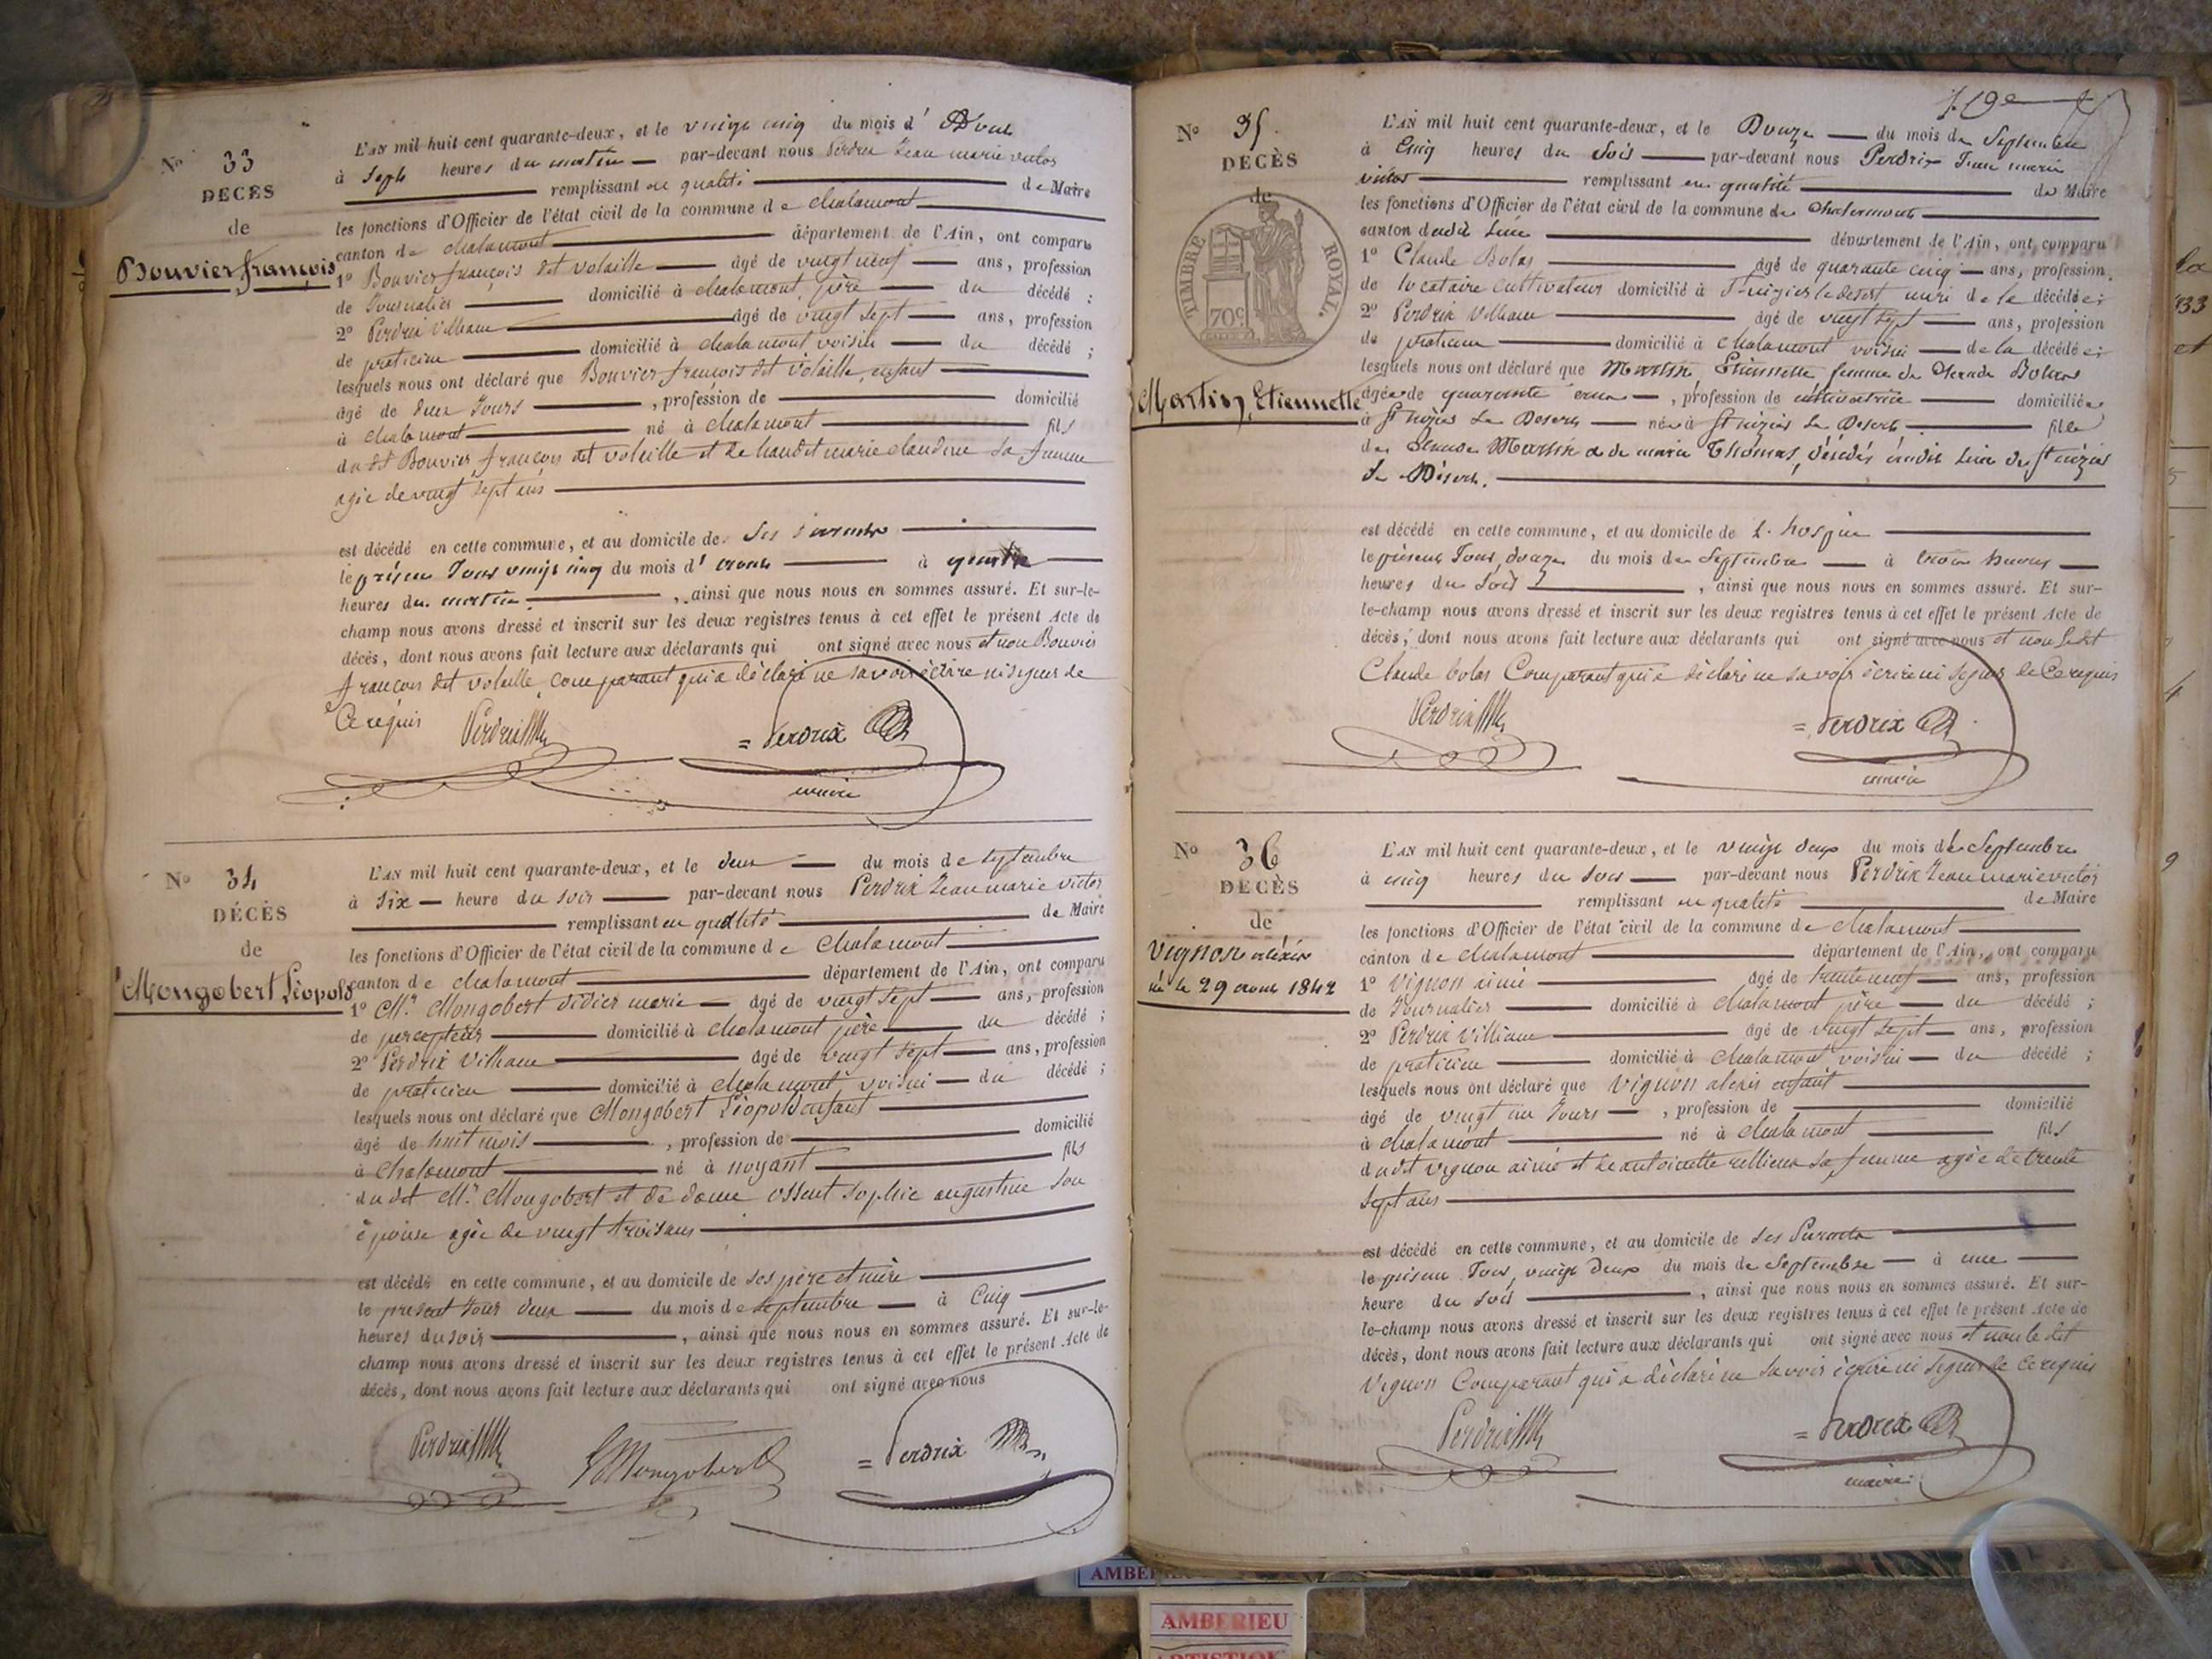 No 33
DÉCÈS
de
Bouvier françois
L'AN mil huit cent quarante-deux, et le vingt cinq du mois d'Août
à Sept heures du matin par-devant nous Perdrix Jean marie victor
remplissant en qualité de Maire
les fonctions d'Officier de l'état civil de la commune de chalamont
canton de chalamont département de l'Ain, ont comparu
1° Bouvier françois dit volaille âgé de vingt neuf ans, profession
de Journalier domicilié à chalamont, père du décédé ;
2° Perdrix Villiame âgé de vingt sept ans, profession
de praticien domicilié à chalamont voisin du décédé ;
lesquels nous ont déclaré que Bouvier françois dit volaille, enfant
âgé de deux Jours , profession de domicilié
à chalamont né à chalamont fils
du dt Bouvier françois dit volaille et de marie claudine sa femme
agée de vingt sept ans
est décédé en cette commune, et au domicile de Ses parents
le présent Jour vingt cinq du mois d'août à quatre
heures du matin , ainsi que nous nous en sommes assuré. Et sur-le-
champ nous avons dressé et inscrit sur les deux registres tenus à cet effet le présent Acte de
décès, dont nous avons fait lecture aux déclarants qui ont signé avec nous et non Bouvier
françois dit volaille, comparant qui a déclaré ne savoir écrire ni signer de
Ce requis Perdrix = Perdrix
maire
No 34
DÉCÈS
de
Mongobert Léopold
L'AN mil huit cent quarante-deux, et le deux du mois de septembre
à Six heure du soir par-devant nous Perdrix Jean marie victor
remplissant en qualité de Maire
les fonctions d'Officier de l'état civil de la commune de Chalamont
canton de chalamont département de l'Ain, ont comparu
1° Mr. Mongobert didier marie âgé de vingt sept ans, profession
de percepteur domicilié à chalamont père du décédé ;
2° Perdrix Villiame âgé de vingt sept ans, profession
de praticien domicilié à chalamont, voisin du décédé ;
lesquels nous ont déclaré que Mongobert Léopold enfant
âgé de huit mois , profession de domicilié
à Chalamont né à noyant fils
du dt Mr. Mongobert et de dame ossent sophie augustine son
épouse agée de vingt trois ans
est décédé en cette commune, et au domicile de ses père et mère
le présent Jour deux du mois de septembre à Cinq
heures du soir , ainsi que nous nous en sommes assuré. Et sur-le-
champ nous avons dressé et inscrit sur les deux registres tenus à cet effet le présent Acte de
décès, dont nous avons fait lecture aux déclarants qui ont signé avec nous
Perdrix Mongobert = Perdrix
No 35
DÉCÈS
de
TIMBRE ROYAL
70c
Martin, Etiennette
L'AN mil huit cent quarante-deux, et le Douze du mois de Septembre
à Cinq heures du Soir par-devant nous Perdrix Jean marie
victor remplissant en qualité de Maire
les fonctions d'Officier de l'état civil de la commune de Chalamont
canton dudit Lieu département de l'Ain, ont comparu
1° Claude Bolas âgé de quarante cinq ans, profession
de locataire Cultivateur domicilié à St nizier le desert mari de la décédée ;
2° Perdrix Villiame âgé de vingt sept ans, profession
de praticien domicilié à Chalamont voisin de la décédée ;
lesquels nous ont déclaré que Martin Etiennette femme de Claude Bolas
âgée de quarante , profession de cultivatrice domiciliée
à St nizier Le Desert née à St nizier Le Desert fille
de Claude Martin et de marie Thomas, décédés audit Lieu de St nizier
Le Désert.
est décédé en cette commune, et au domicile de L'hospice
le présent Jour, douze du mois de Septembre à trois heures
heures du Soir , ainsi que nous nous en sommes assuré. Et sur-
le-champ nous avons dressé et inscrit sur les deux registres tenus à cet effet le présent Acte de
décès, dont nous avons fait lecture aux déclarants qui ont signé avec nous et non ledit
Claude bolas Comparant qui a déclaré ne savoir écrire ni signer de Ce requis
Perdrix = Perdrix
maire
No 36
DÉCÈS
de
Vignon aléxis
né le 29 août 1842
L'AN mil huit cent quarante-deux, et le vingt deux du mois de Septembre
à cinq heures du soir par-devant nous Perdrix Jean marie victor
remplissant en qualité de Maire
les fonctions d'Officier de l'état civil de la commune de chalamont
canton de chalamont département de l'Ain, ont comparu
1° Vignon aimé âgé de trente neuf ans, profession
de Journalier domicilié à chalamont père du décédé ;
2° Perdrix Villiame âgé de vingt sept ans, profession
de praticien domicilié à chalamont voisin du décédé ;
lesquels nous ont déclaré que Vignon alexis enfant
âgé de vingt un Jours , profession de domicilié
à chalamont né à chalamont fils
du dt Vignon aimé et de antoinette sa femme agée de trente
sept ans
est décédé en cette commune, et au domicile de ses Parents
le présent Jour, vingt deux du mois de Septembre à une
heure du soir , ainsi que nous nous en sommes assuré. Et sur-
le-champ nous avons dressé et inscrit sur les deux registres tenus à cet effet le présent Acte de
décès, dont nous avons fait lecture aux déclarants qui ont signé avec nous et non le dit
Vignon Comparant qui a déclaré ne savoir écrire ni signer de ce requis
Perdrix = Perdrix
maire
AMBERIEU